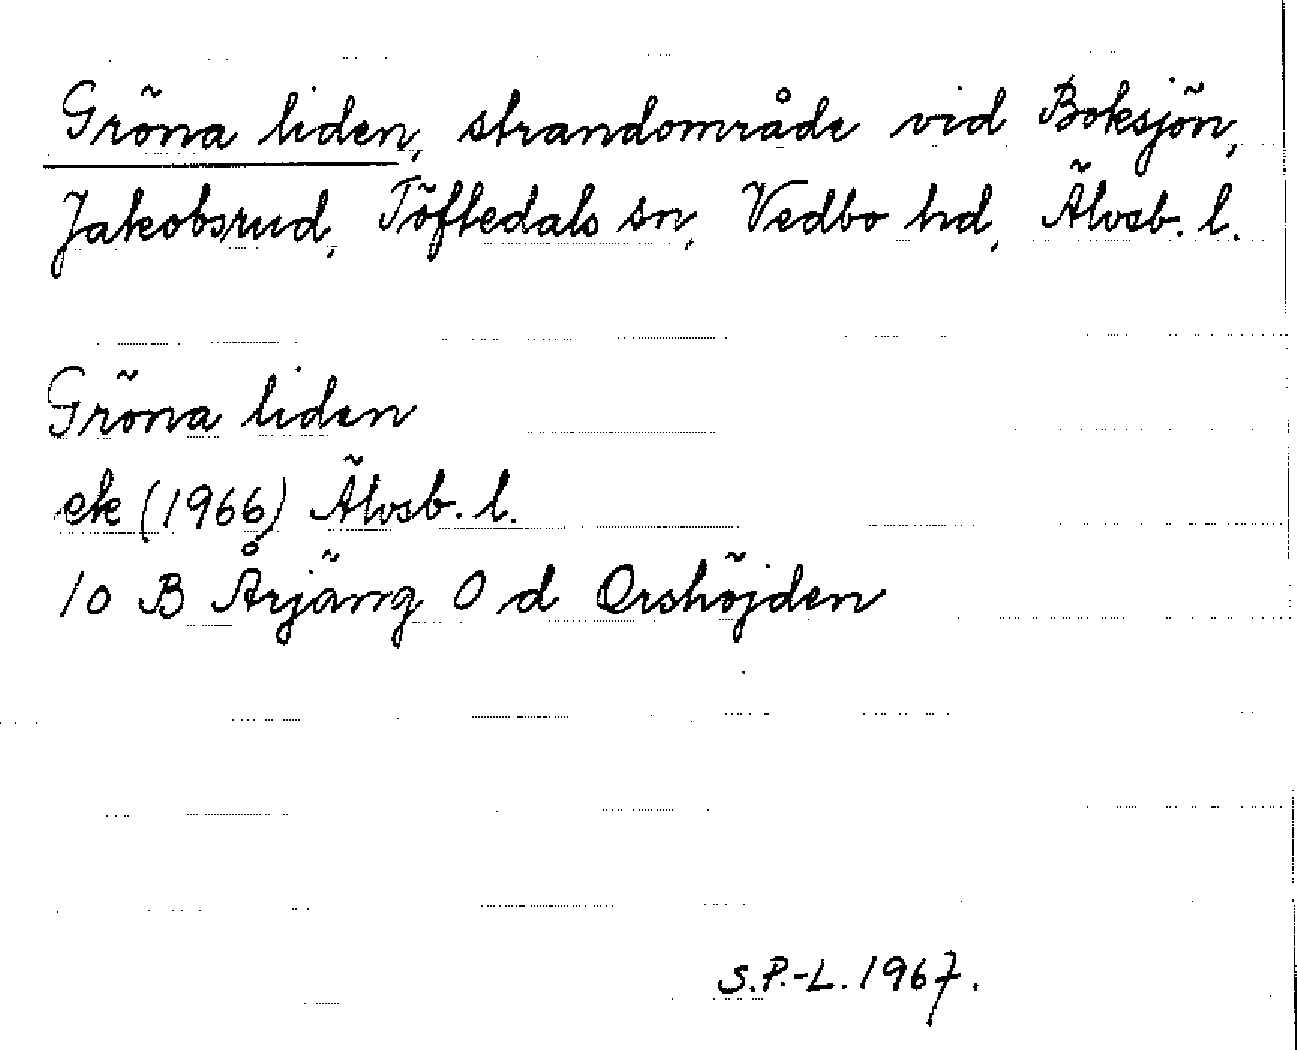 Gröna liden, strandområde vid Boksjön,
Jakobsrud, Töftedals sn, Vedbo hd, Älvsb. l.
Gröna liden
ek (1966) Älvsb. l.
10 B Årjäng 0 d Orshöjden
S.P.-L. 1967.